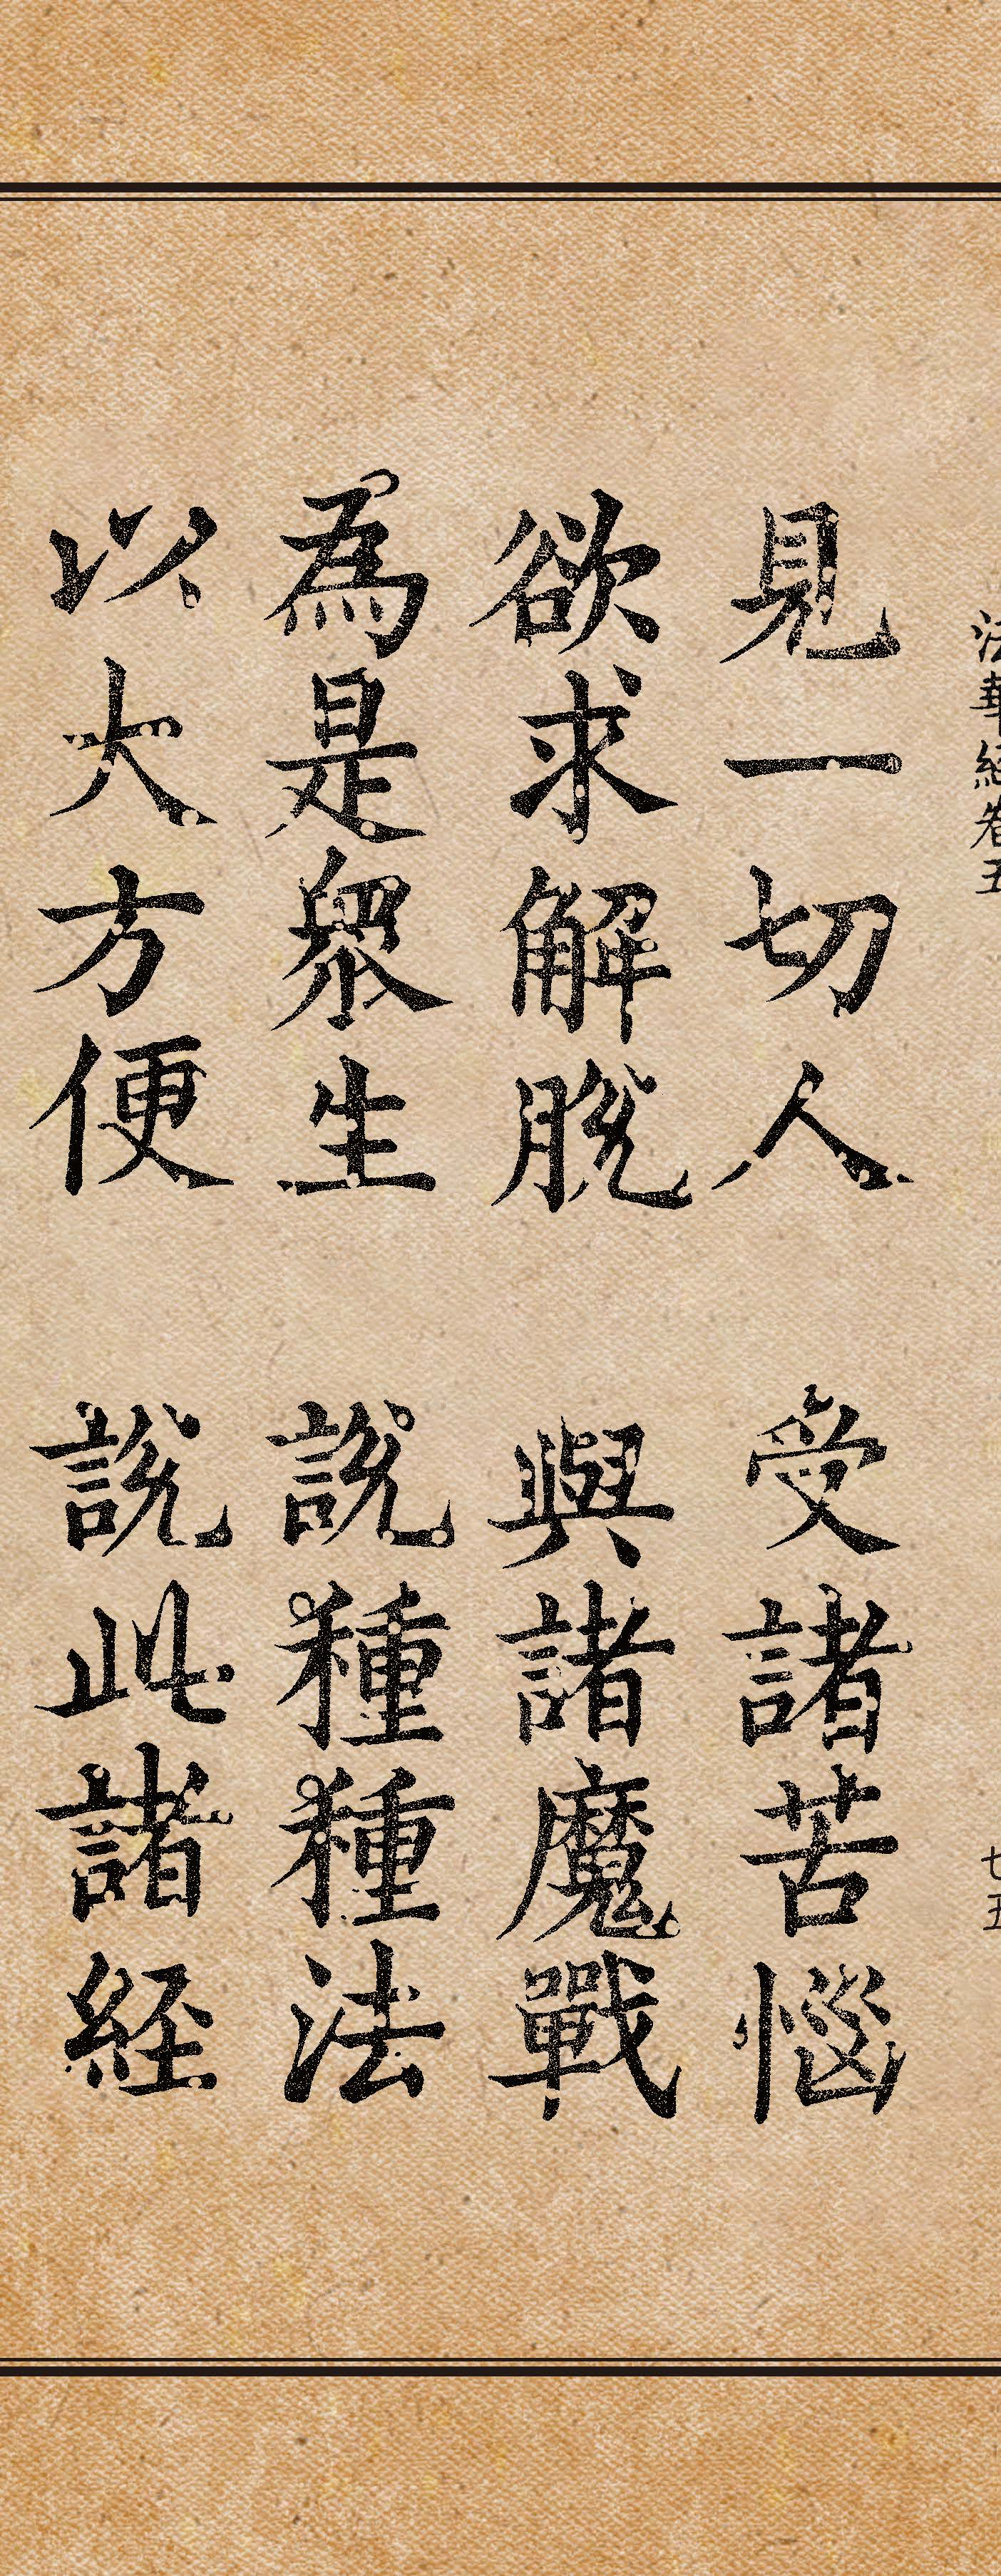 法華経巻五
七五
見一切人 受諸苦惱
欲求解脱 與諸魔戰
為是衆生 説種種法
以大方便 説此諸経